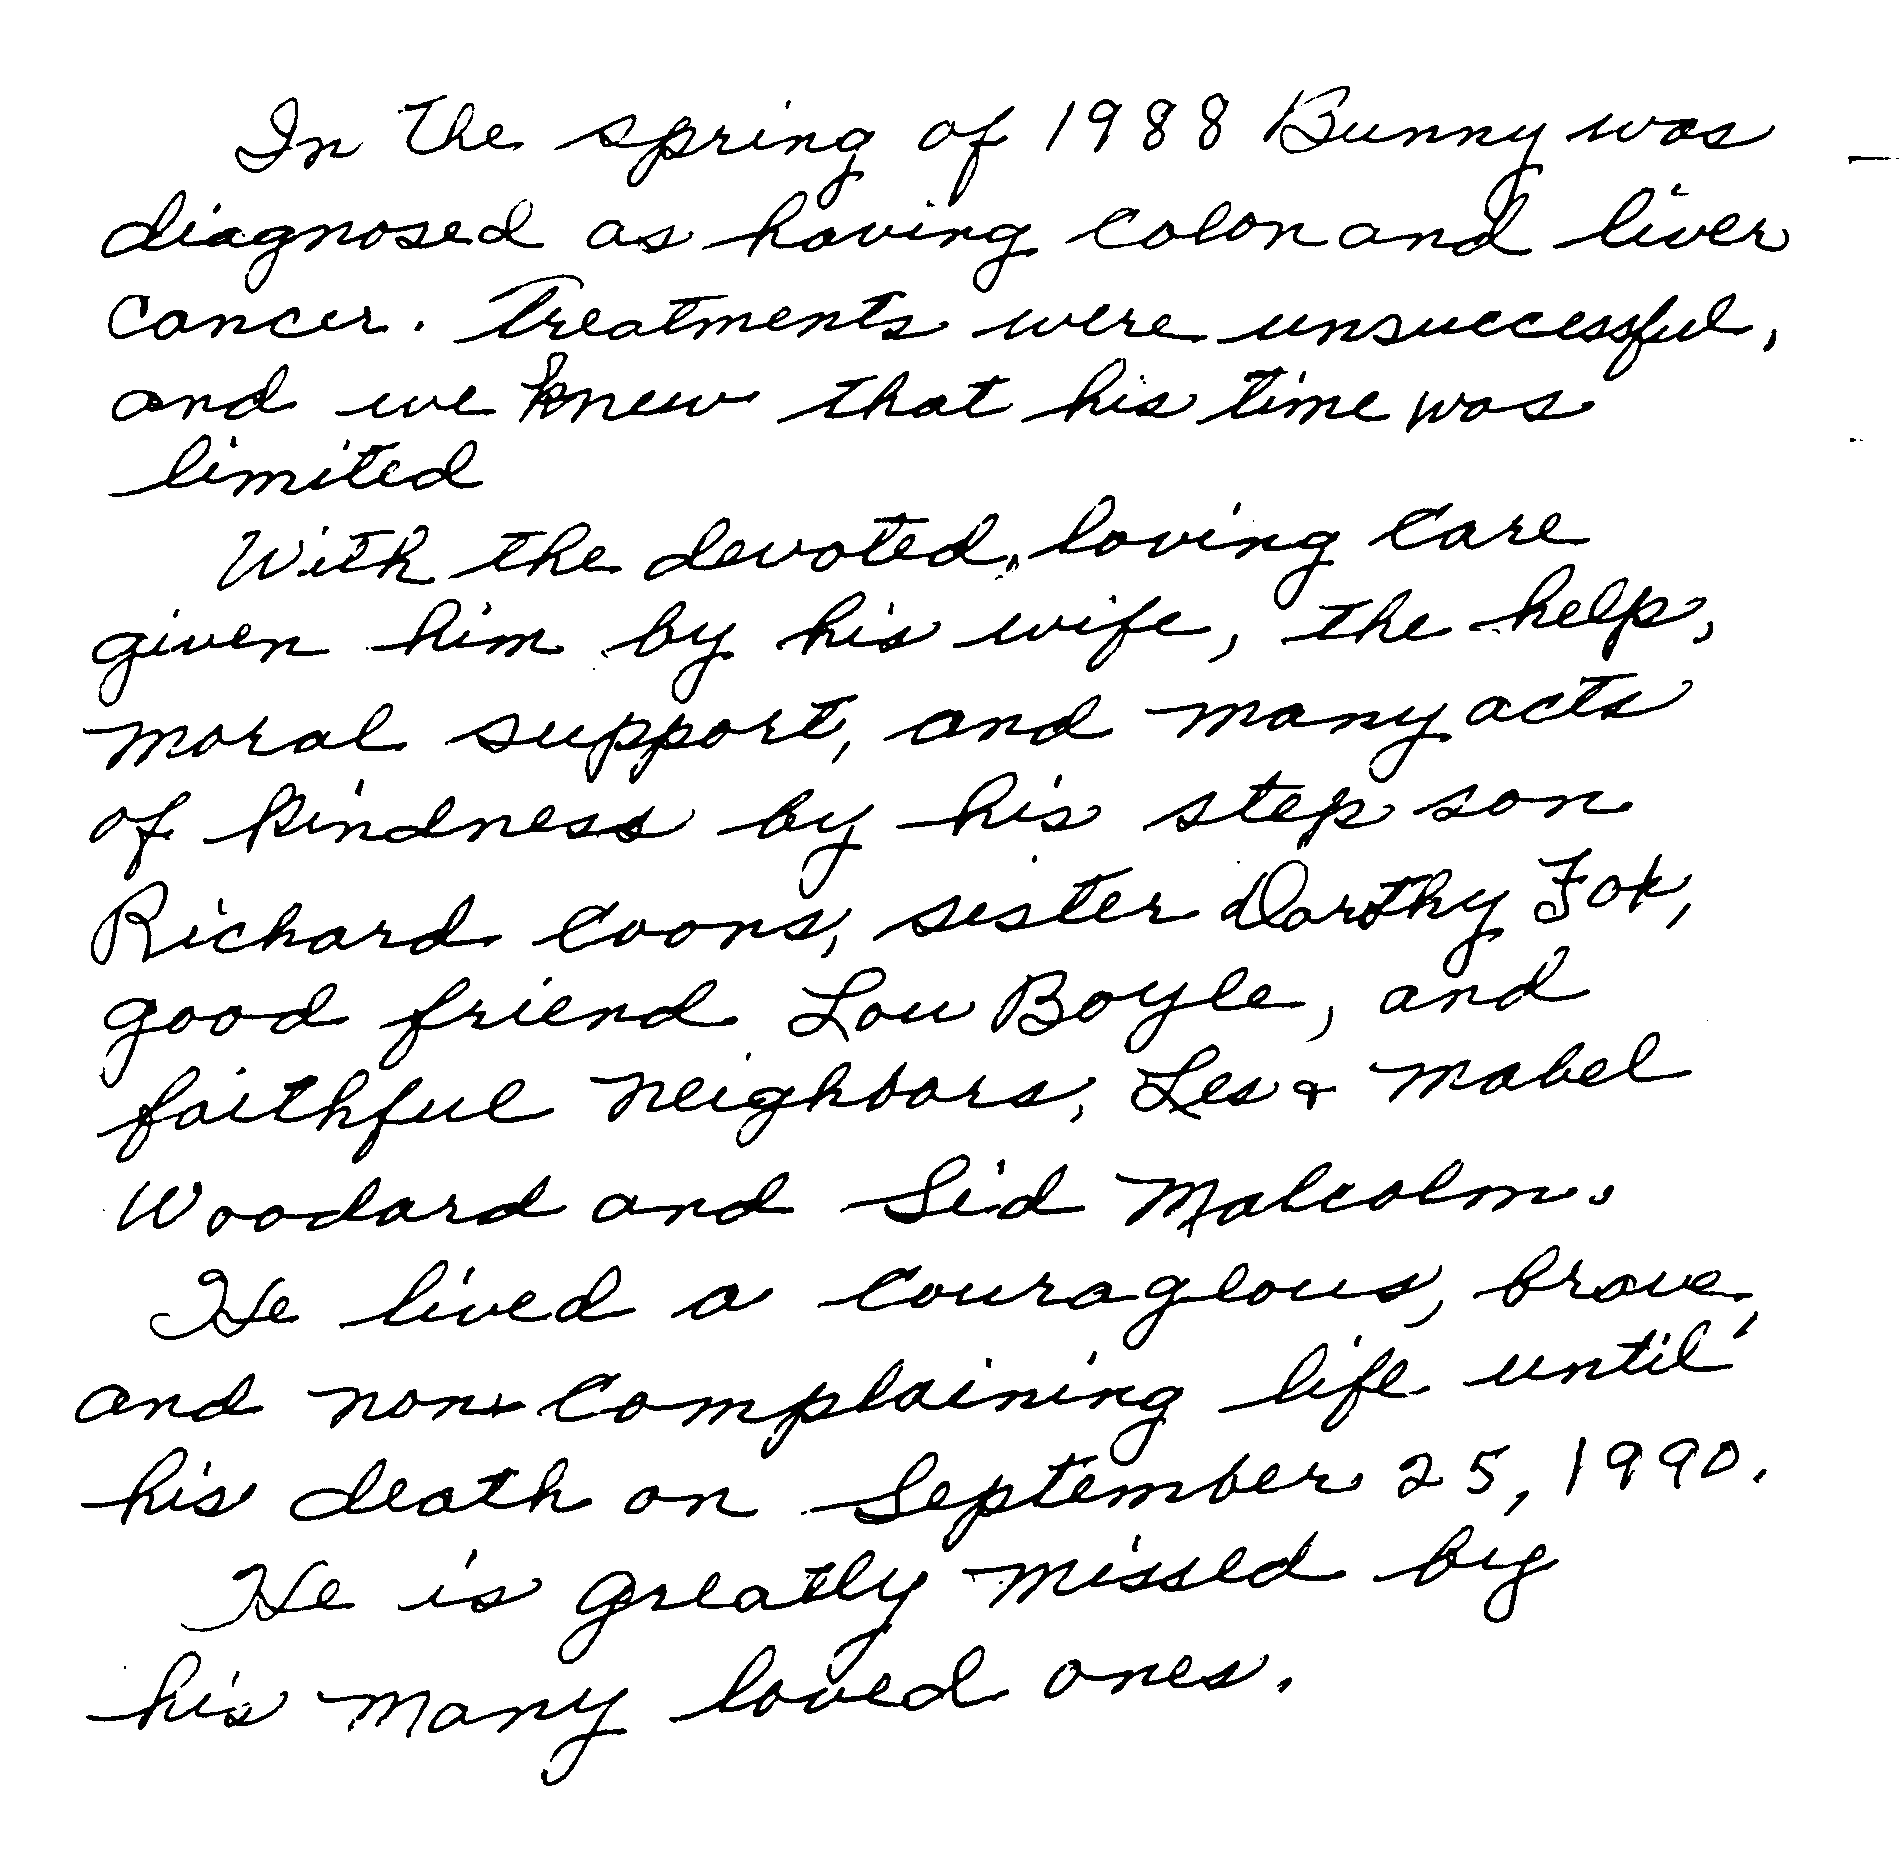 In the spring of 1988 Bunny was
diagnosed as having colon and liver
cancer. Treatments were unsuccessful,
and we knew that his time was
limited
With the devoted, loving care
given him by his wife, the help,
moral support, and many acts
of kindness by his step son
Richard Coons, sister Dorothy Fox,
good friend Lou Boyle, and
faithful neighbors, Les & Mabel
Woodard and Sid Malcolm.
He lived a courageous, brave,
and non-complaining life until
his death on September 25, 1990.
He is greatly missed by
his many loved ones.